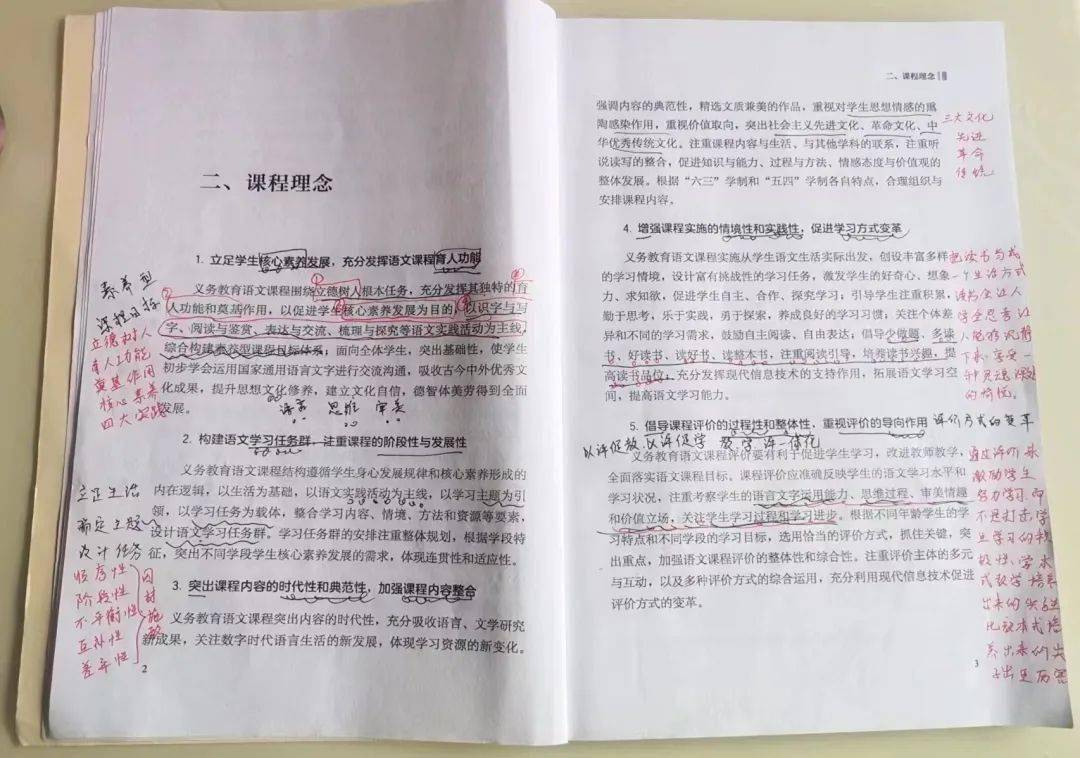 二、课程理念
1. 立足学生核心素养发展，充分发挥语文课程育人功能
义务教育语文课程围绕立德树人根本任务，充分发挥其独特的育
人功能和奠基作用，以促进学生核心素养发展为目的，以识字与写
字、阅读与鉴赏、表达与交流、梳理与探究等语文实践活动为主线，
综合构建素养型课程目标体系；面向全体学生，突出基础性，使学生
初步学会运用国家通用语言文字进行交流沟通，吸收古今中外优秀文
化成果，提升思想文化修养，建立文化自信，德智体美劳得到全面
发展。
语言 思维 审美
素养型
课程目标
立德树人
育人功能
奠基作用
核心素养
四大实践
2. 构建语文学习任务群，注重课程的阶段性与发展性
义务教育语文课程结构遵循学生身心发展规律和核心素养形成的
内在逻辑，以生活为基础，以语文实践活动为主线，以学习主题为引
领，以学习任务为载体，整合学习内容、情境、方法和资源等要素，
设计语文学习任务群。学习任务群的安排注重整体规划，根据学段特
征，突出不同学段学生核心素养发展的需求，体现连贯性和适应性。
立足生活
确定主题
设计任务
阶段性
不平衡性
互补性
差异性
因材施教
3. 突出课程内容的时代性和典范性，加强课程内容整合
义务教育语文课程突出内容的时代性，充分吸收语言、文学研究
新成果，关注数字时代语言生活的新发展，体现学习资源的新变化。
2
二、课程理念
强调内容的典范性，精选文质兼美的作品，重视对学生思想情感的熏
陶感染作用，重视价值取向，突出社会主义先进文化、革命文化、中
华优秀传统文化。注重课程内容与生活、与其他学科的联系，注重听
说读写的整合，促进知识与能力、过程与方法、情感态度与价值观的
整体发展。根据“六三”学制和“五四”学制各自特点，合理组织与
安排课程内容。
三大文化
先进
革命
传统
4. 增强课程实施的情境性和实践性，促进学习方式变革
义务教育语文课程实施从学生语文生活实际出发，创设丰富多样
的学习情境，设计富有挑战性的学习任务，激发学生的好奇心、想象
力、求知欲，促进学生自主、合作、探究学习；引导学生注重积累，
勤于思考，乐于实践，勇于探索，养成良好的学习习惯；关注个体差
异和不同的学习需求，鼓励自主阅读、自由表达；倡导少做题、多读
书、好读书、读好书、读整本书，注重阅读引导，培养读书兴趣，提
高读书品位；充分发挥现代信息技术的支持作用，拓展语文学习空
间，提高语文学习能力。
把读书当成
一个生活方式
学会思考让
下来，享受一
5. 倡导课程评价的过程性和整体性，重视评价的导向作用
评价方式的变革
以评促教 以评促学 教学评一体化
义务教育语文课程评价要有利于促进学生学习，改进教师教学，
全面落实语文课程目标。课程评价应准确反映学生的语文学习水平和
学习状况，注重考察学生的语言文字运用能力、思维过程、审美情趣
和价值立场，关注学生学习过程和学习进步。根据不同年龄学生的学
习特点和不同学段的学习目标，选用恰当的评价方式，抓住关键，突
出重点，加强语文课程评价的整体性和综合性。注重评价主体的多元
与互动，以及多种评价方式的综合运用，充分利用现代信息技术促进
评价方式的变革。
通过评价来
激励学生
努力学习，而
不是打击学
生学习的积
极性。
3